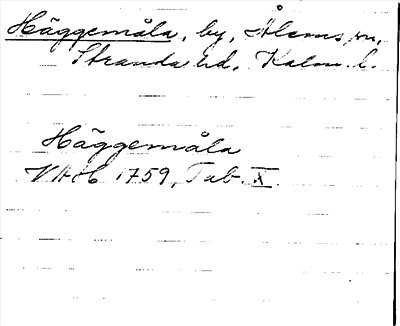 Häggemåla, by, Ålems sn,
Stranda hd, Kalm. l.
Häggemåla
VAH 1759, Tab. X.